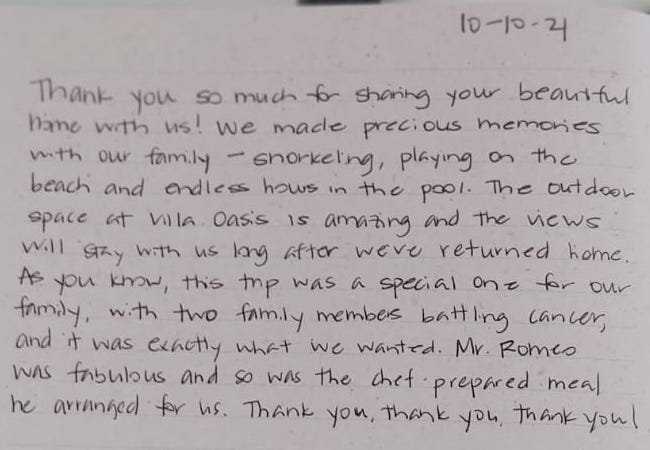 10-10-21
Thank you so much for sharing your beautiful
home with us! We made precious memories
with our family - snorkeling, playing on the
beach and endless hours in the pool. The outdoor
space at Villa Oasis is amazing and the views
will stay with us long after we've returned home.
As you know, this trip was a special one for our
family, with two family members battling cancer,
and it was exactly what we wanted. Mr. Romeo
was fabulous and so was the chef-prepared meal
he arranged for us. Thank you, thank you, thank you!